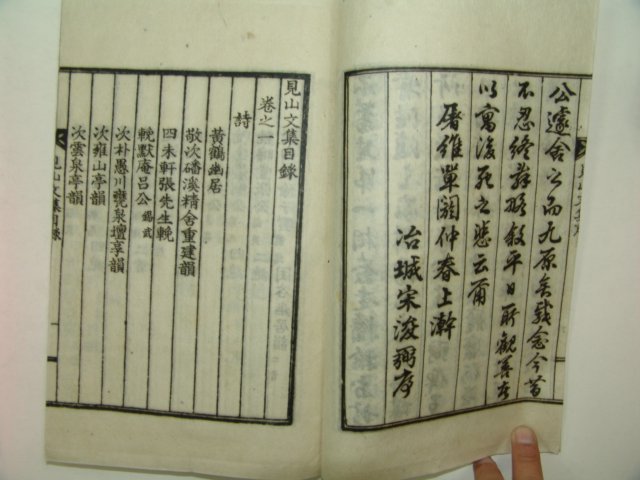 公遽舍公而九原矣哉念今昔
不忍終辭略敍平日所觀善者
以寓後死之悲云爾
屠維單閼仲春上澣
冶城宋浚弼序
見山文集目錄
卷之一
詩
黃鶴幽居
敬次磻溪精舍重建韻
四未軒張先生輓
輓默庵呂公錫武
次朴愚川甕泉壇享韻
次雍山亭韻
次雲泉亭韻
見山文集目錄
一